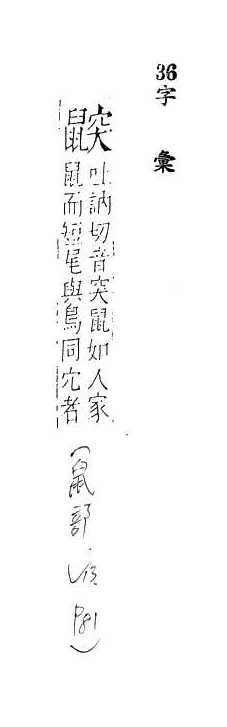 36字 彙
鼵
吐訥切音突鼠如人家
鼠而短尾與鳥同穴者
(鼠部. P81)